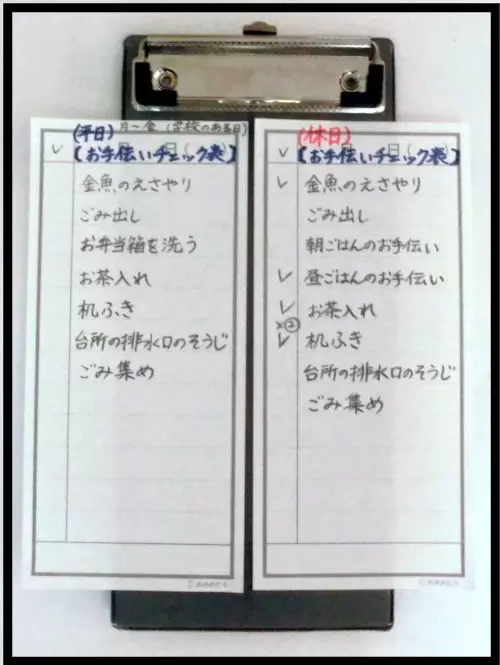 (平日) 月〜金 (学校のある日)
✓ 【お手伝いチェック表】
金魚のえさやり
ごみ出し
お弁当箱を洗う
お茶入れ
机ふき
台所の排水口のそうじ
ごみ集め
(休日)
✓ 【お手伝いチェック表】
✓ 金魚のえさやり
ごみ出し
朝ごはんのお手伝い
✓ 昼ごはんのお手伝い
✓ お茶入れ
×②
✓ 机ふき
台所の排水口のそうじ
ごみ集め